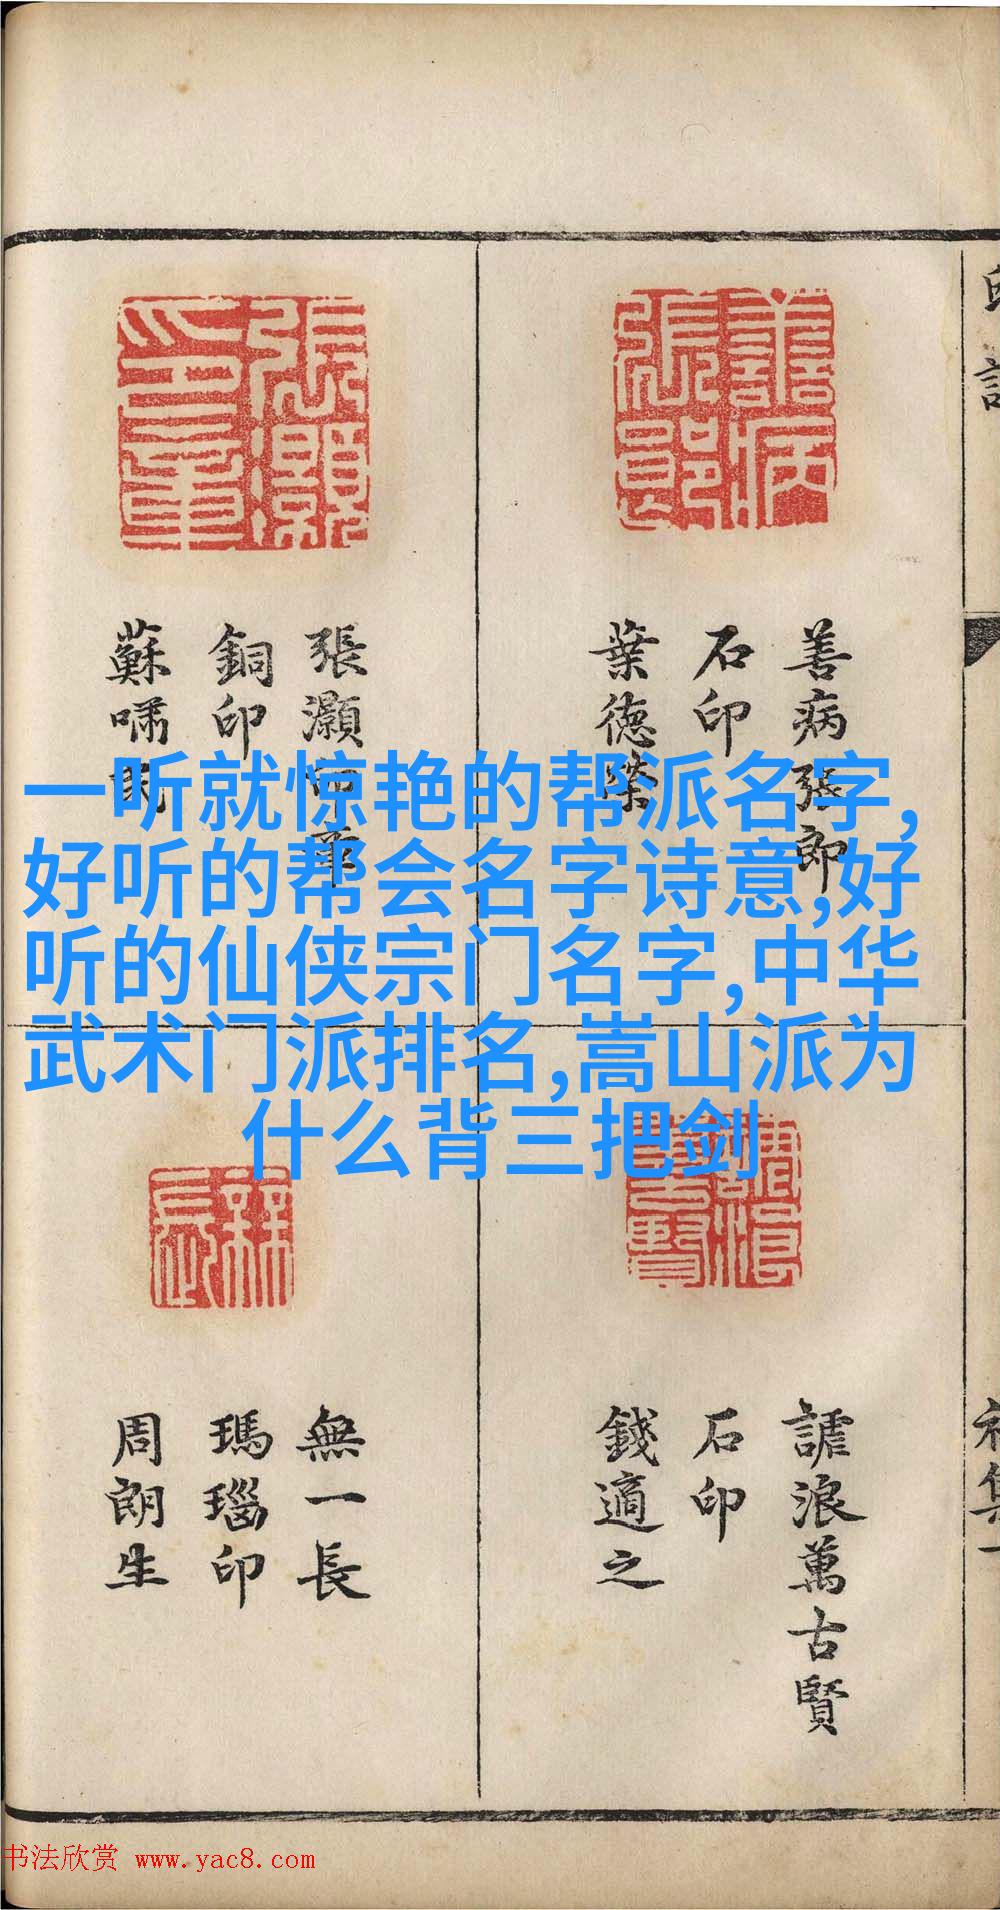 善病張郎
石印
葉德榮
張灝
銅印
蘇嘯民
一听就惊艳的帮派名字,
好听的帮会名字诗意,好
听的仙侠宗门名字,中华
武术门派排名,嵩山派为
什么背三把剑
謔浪萬古賢
石印
錢適之
無一長
瑪瑙印
周朗生
书法欣赏 www.yac8.com